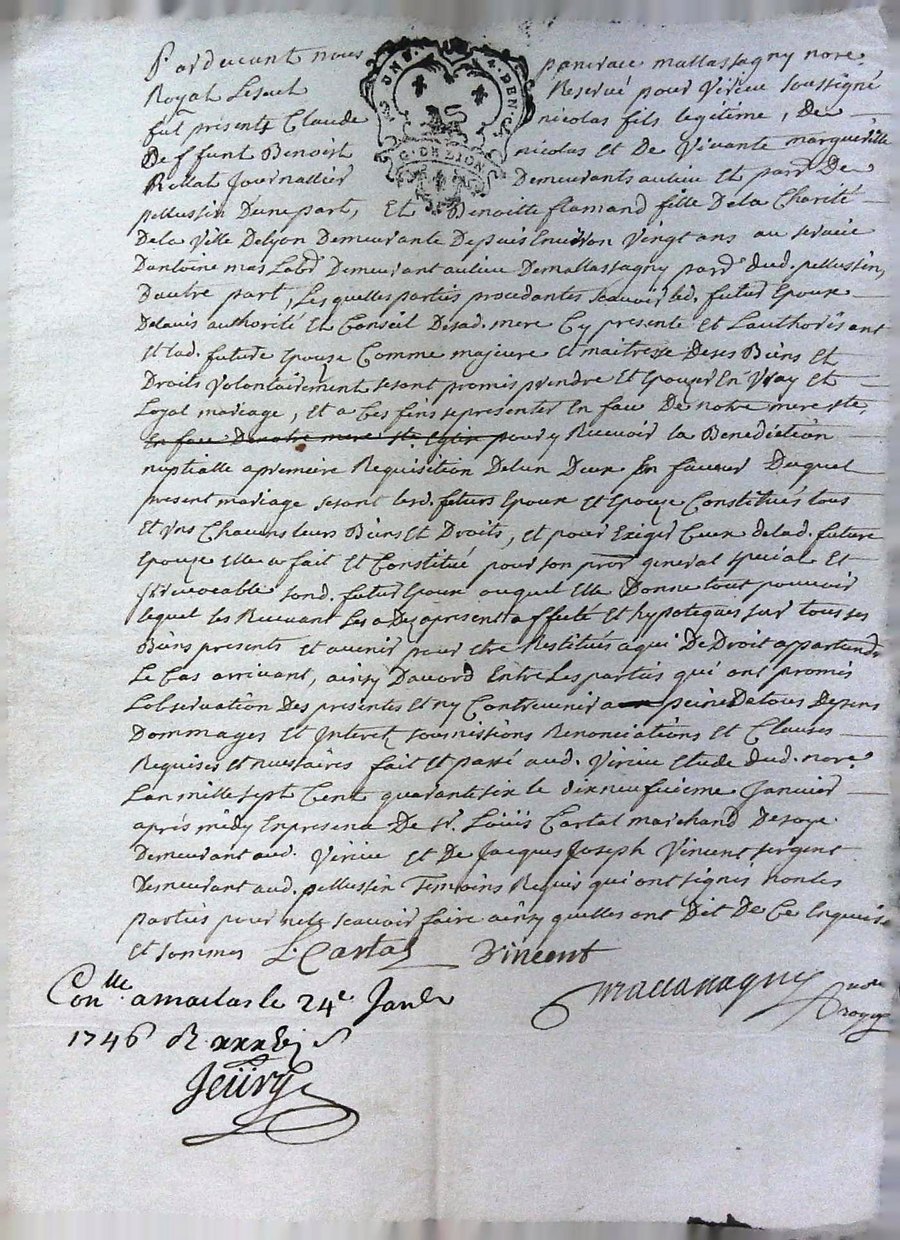 Pardevant nous pancrace mallassagny nore
Royal Reservé pour Virieu soussigné
fut présent Claude nicolas fils legitime, de
Deffunt Benoist nicolas et De Vivante marquville
Journallier Demeurants au lieu et parr. De
pellussin Dune part, Et Benoitte flamand fille De la Charité
De la Ville Delyon Demeurante Depuis Environ Vingt ans au service
Dantoine mas Labr. Demeurant au lieu Demallassagny parr. dud. pellussin,
Dautre part, Lesquelles parties procedantes scavoir led. futur Epoux
Delavis authorité Et Conseil Desad. mere Cy presente et Lauthorisant
et lad. future Epouse Comme majeure et maitresse De ses Biens Et
Droits Volontairement se sont promis prendre Et Epouser En Vray et
Loyal mariage, Et a Ces fins se presenter En face De notre mere ste,
En face De notre mere ste Eglise pour y Recevoir la Benediction
nuptialle a premeire Requisition Delun Deux En faveur Duquel
present mariage se sont lesd. futurs Epoux Et Epouze Constitués tous
Et Uns Chacuns leurs Biens Et Droits, Et pour Exiger Ceux delad. future
Epouze Elle a fait Et Constitué pour son procr general special Et
jrrevocable sond. futur Epoux auquel Elle Donne tout pouvoir
lequel les Recevant Les a Dez apresent affecté et hypoteques sur tous ses
Biens presents et avenir pour etre Restitués a qui De Droit appartiendr
Le Cas arrivant, ainsy Daccord Entre Les parties qui ont promis
Lobservation Des presentes et ny Contrevenir a peine De tous Depens
Dommages Et Interetz soumissions Renonciations et Clauses
Requises et necessaires fait et passé aud. Virieu Etude dud. nore.
Lan mille sept Cent quarante six le dixneufvieme Janvier
après midy En presence De sr. Louis Cartal marchand De soye
Demeurant aud. Virieu et De Jacques Joseph Vincent sergent
Demeurant aud. pellussin Temoins Requis qui ont signes non les
parties pour ne le scavoir faire ainsy quelles ont Dit De Ce Enquises
et sommés L. Cartal Vincent
mallassagny nore royal
Conlle. a maclas le 24e Janver
1746
Jeüry